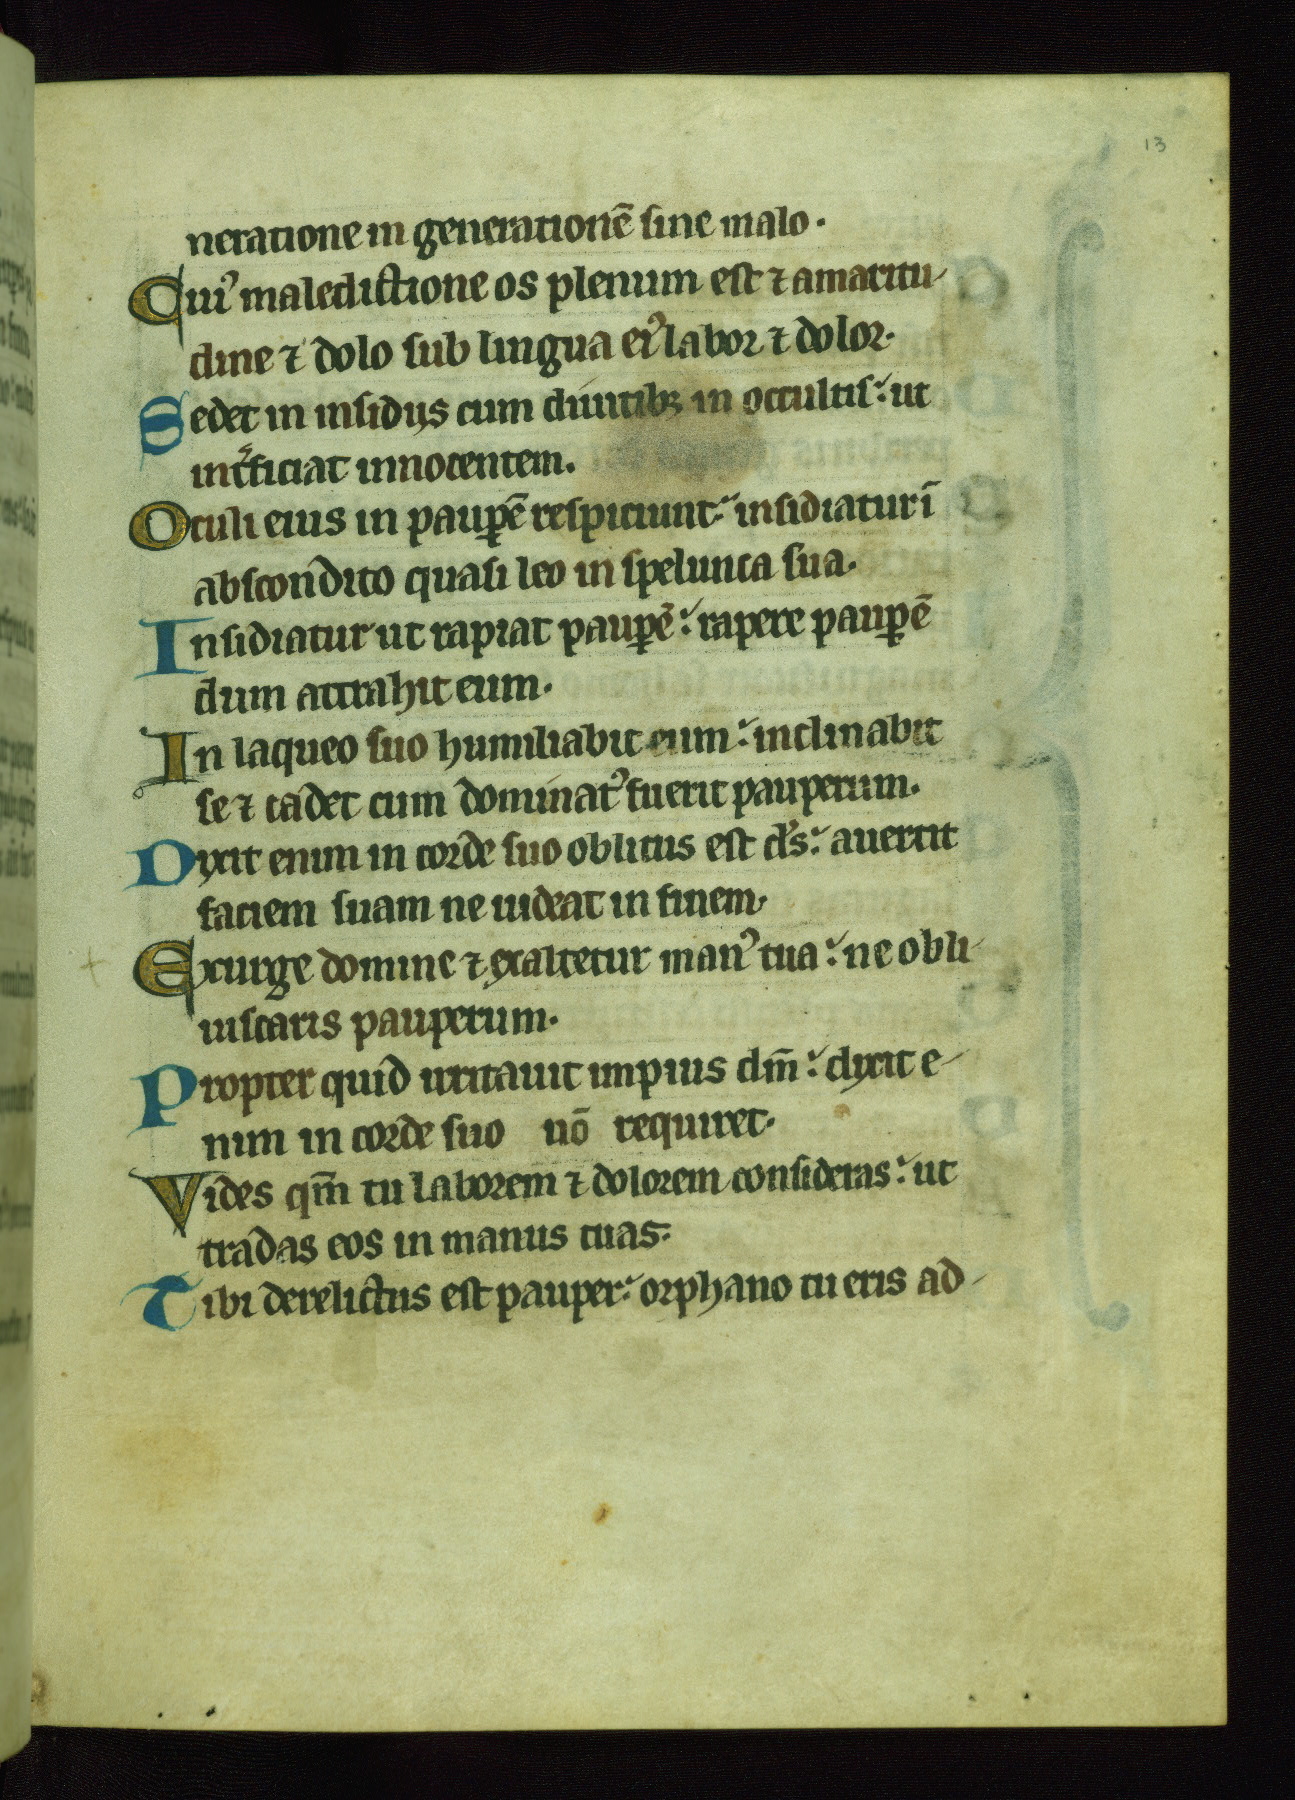 13
neratione in generationē sine malo ·
Cui᾽ maledictione os plenum est ⁊ amaritu-
dine ⁊ dolo sub lingua ei᾽ labor ⁊ dolor.
Sedet in insidijs cum diuitibꝫ in occultis: ut
int̾ficiat innocentem.
Oculi eius in pauꝑē respiciunt: insidiatur ī
abscondito quasi leo in spelunca sua.
Insidiatur ut rapiat pauꝑē: rapere pauꝑē
dum attrahit eum.
In laqueo suo humiliabit eum: inclinabit
se ⁊ cadet cum dominat᾽ fuerit pauperum.
Dixit enim in corde suo oblitus est ds̄: auertit
faciem suam ne uideat in finem.
Exurge domine ⁊ exaltetur man᾽ tua: ne obli-
uiscaris pauperum.
Propter quid irritauit impius dm̄: dixit e-
nim in corde suo nō requiret.
Vides qm̄ tu laborem ⁊ dolorem consideras: ut
tradas eos in manus tuas.
Tibi derelictus est pauper: orphano tu eris ad-